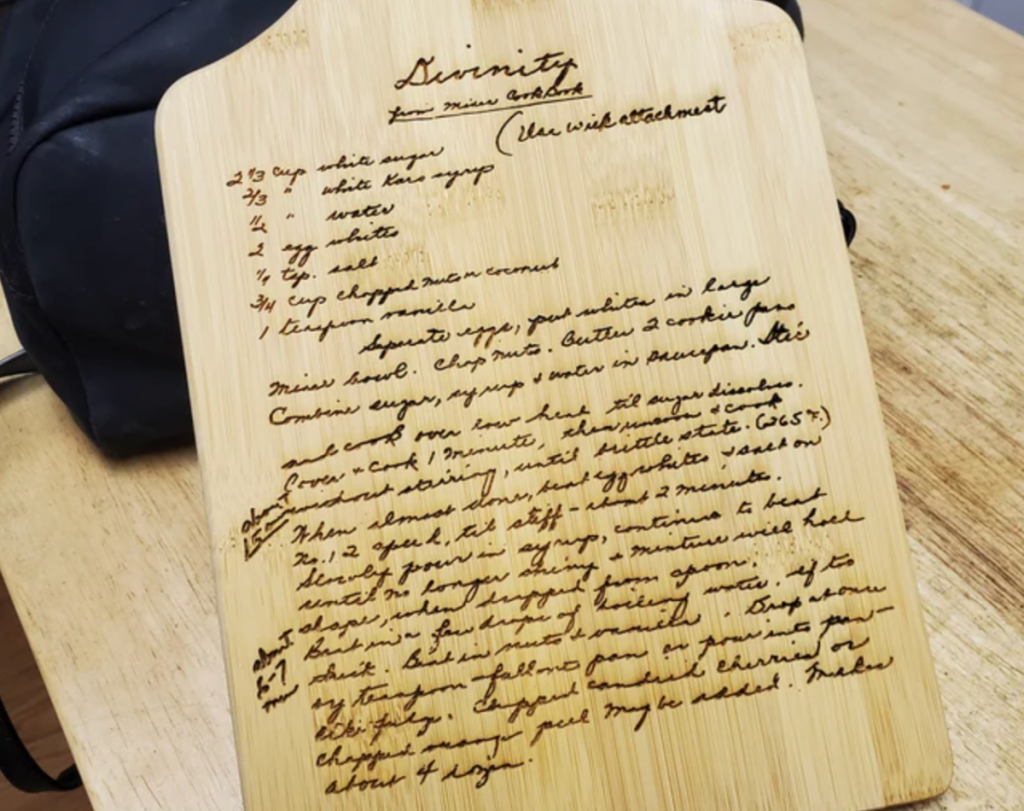 Divinity
from Mixer Cookbook
(Use whip attachment
2 1/3 cup white sugar
2/3 " white Karo syrup
1/2 " water
2 egg whites
1/4 tsp. salt
3/4 cup chopped nuts or coconut
1 teaspoon vanilla
Seperate eggs, put whites in large
mixer bowl. Chop nuts. Butter 2 cookie pans
Combine sugar, syrup & water in saucepan. Stir
and cook over low heat 'til sugar dissolves.
Cover & cook 1 minute, then uncover & cook
without stirring, until brittle state. (265°F.)
about 15 min
When almost done, beat egg whites & salt on
No. 12 speed, til stiff - about 2 minutes.
Slowly pour in syrup, continue to beat
until no longer shiny & mixture will hold
shape, when dropped from spoon.
about 6-7 min
Beat in a few drops of boiling water, if to
thick. Beat in nuts & vanilla. Drop at once
by teaspoon - full on pan or pour into pan -
like fudge. Chopped candied cherries or
chopped orange peel may be added. Makes
about 4 dozen.